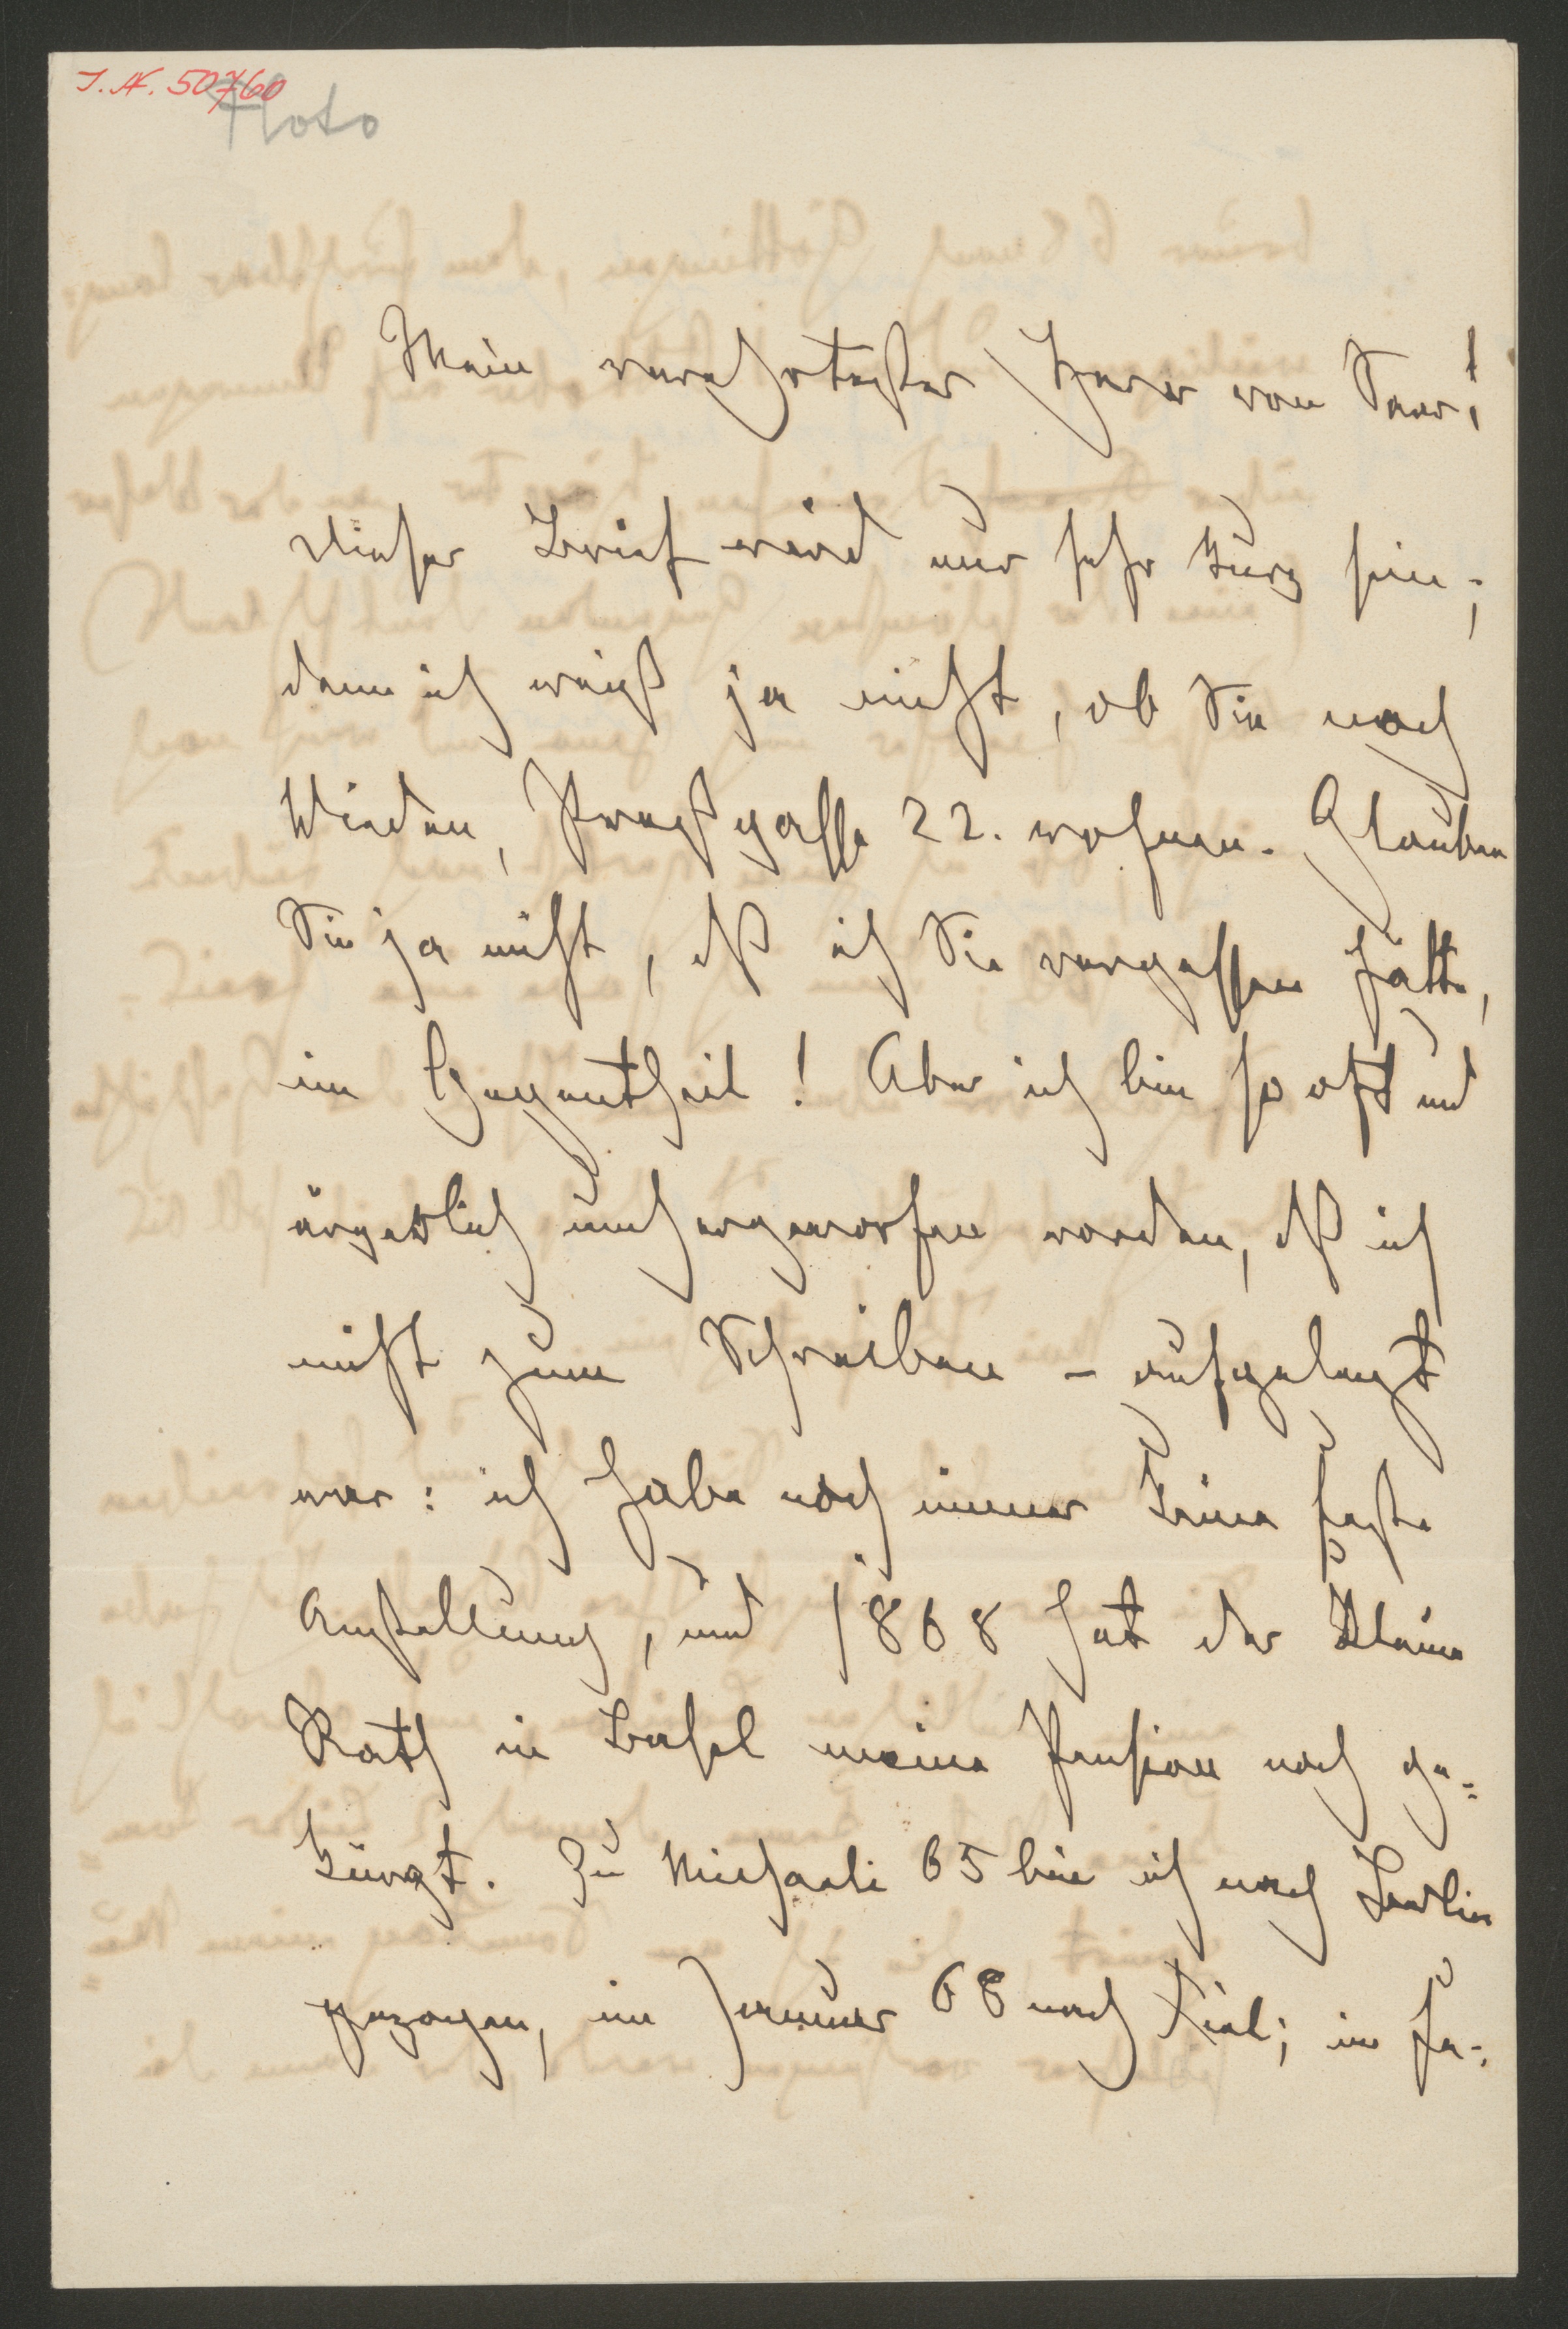 I. N. 50760
Floto
Mein verehrtester Herr von Saar!
Dieser Brief wird nur sehr kurz sein;
denn ich weiß ja nicht, ob Sie noch
Wieden, Preßgasse 22. wohnen. Glauben
Sie ja nicht, dß ich Sie vergessen hätte,
im Gegentheil! Aber ich bin so oft und
ärgerlich umhergeworfen worden, dß ich
nicht zum Schreiben – aufgelegt
war: ich habe noch immer keine feste
Anstellung, und 1868 hat der Kleine
Rath in Basel meine Pension noch ge=
kürzt. Zu Michaeli 65 bin ich nach Berlin
gezogen, im Januar 68 nach Kiel; im Fe=